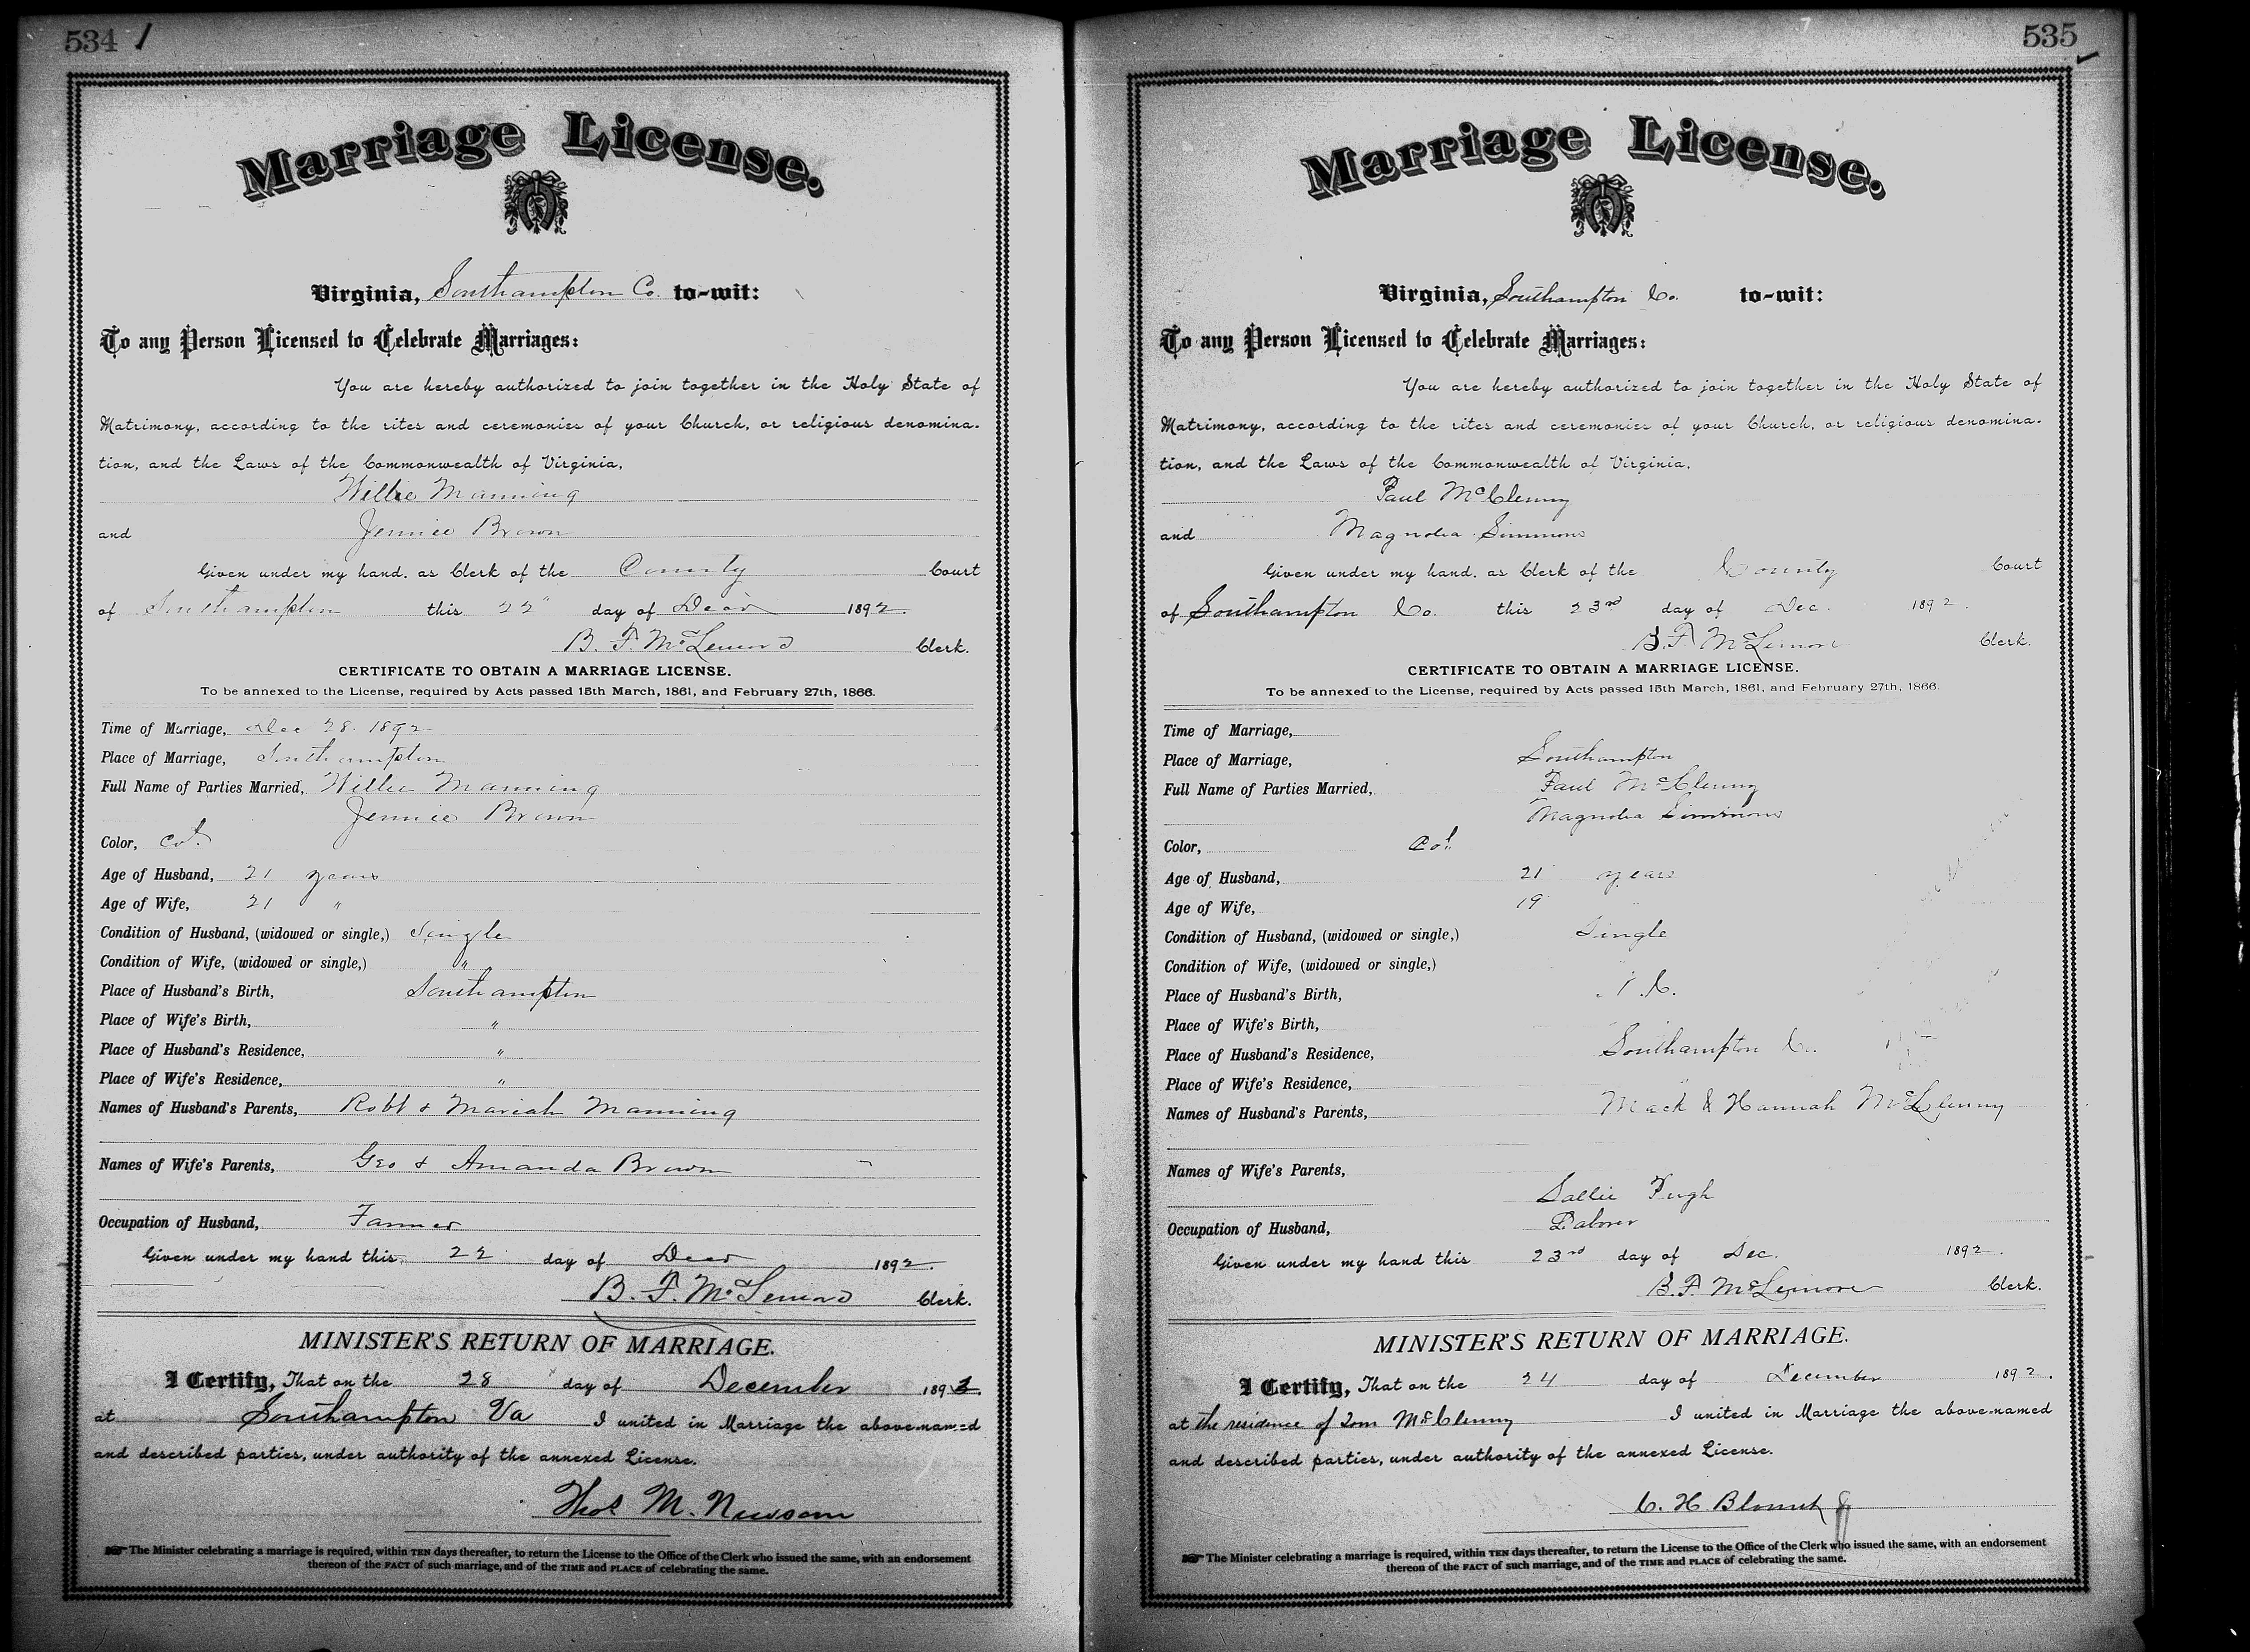 534
Marriage License.
Virginia, Southampton Co. to-wit:
To any Person Licensed to Celebrate Marriages:
You are hereby authorized to join together in the Holy State of
Matrimony, according to the rites and ceremonies of your Church, or religious denomina-
tion, and the Laws of the Commonwealth of Virginia,
Willie Manning
and Jennie Brown
Given under my hand, as Clerk of the County Court
of Southampton this 22" day of Decr 1892.
B. F. McLemore Clerk.
CERTIFICATE TO OBTAIN A MARRIAGE LICENSE.
To be annexed to the License, required by Acts passed 15th March, 1861, and February 27th, 1866.
Time of Marriage, Dec 28. 1892
Place of Marriage, Southampton
Full Name of Parties Married, Willie Manning
Jennie Brown
Color, Cold.
Age of Husband, 21 years
Age of Wife, 21 "
Condition of Husband, (widowed or single,) Single
Condition of Wife, (widowed or single,) "
Place of Husband's Birth, Southampton
Place of Wife's Birth, "
Place of Husband's Residence, "
Place of Wife's Residence, "
Names of Husband's Parents, Robt & Mariah Manning
Names of Wife's Parents, Geo & Amanda Brown
Occupation of Husband, Farmer
Given under my hand this 22 day of Decr 1892.
B. F. McLemore Clerk.
MINISTER'S RETURN OF MARRIAGE.
I Certify, That on the 28 day of December 189
at Southampton Va I united in Marriage the above-named
and described parties, under authority of the annexed License.
Thos M. Newsom
The Minister celebrating a marriage is required, within TEN days thereafter, to return the License to the Office of the Clerk who issued the same, with an endorsement
thereon of the FACT of such marriage, and of the TIME and PLACE of celebrating the same.
535
Marriage License.
Virginia, Southampton Co. to-wit:
To any Person Licensed to Celebrate Marriages:
You are hereby authorized to join together in the Holy State of
Matrimony, according to the rites and ceremonies of your Church, or religious denomina-
tion, and the Laws of the Commonwealth of Virginia,
Paul McClenny
and Magnolia Simmons
Given under my hand, as Clerk of the County Court
of Southampton Co. this 23rd day of Dec. 1892.
B. F. McLemore Clerk.
CERTIFICATE TO OBTAIN A MARRIAGE LICENSE.
To be annexed to the License, required by Acts passed 15th March, 1861, and February 27th, 1866.
Time of Marriage,
Place of Marriage, Southampton
Full Name of Parties Married, Paul McClenny
Magnolia Simmons
Color, Col.
Age of Husband, 21 years
Age of Wife, 19
Condition of Husband, (widowed or single,) Single
Condition of Wife, (widowed or single,)
Place of Husband's Birth, N. C.
Place of Wife's Birth,
Place of Husband's Residence, Southampton Co.
Place of Wife's Residence, "
Names of Husband's Parents, Mack & Hannah McClenny
Names of Wife's Parents,
Sallie Pugh
Occupation of Husband, Laborer
Given under my hand this 23rd day of Dec. 1892.
B. F. McLemore Clerk.
MINISTER'S RETURN OF MARRIAGE.
I Certify, That on the 24 day of December 1892.
at the residence of Tom McClenny I united in Marriage the above-named
and described parties, under authority of the annexed License.
C. H. Blount
The Minister celebrating a marriage is required, within TEN days thereafter, to return the License to the Office of the Clerk who issued the same, with an endorsement
thereon of the FACT of such marriage, and of the TIME and PLACE of celebrating the same.